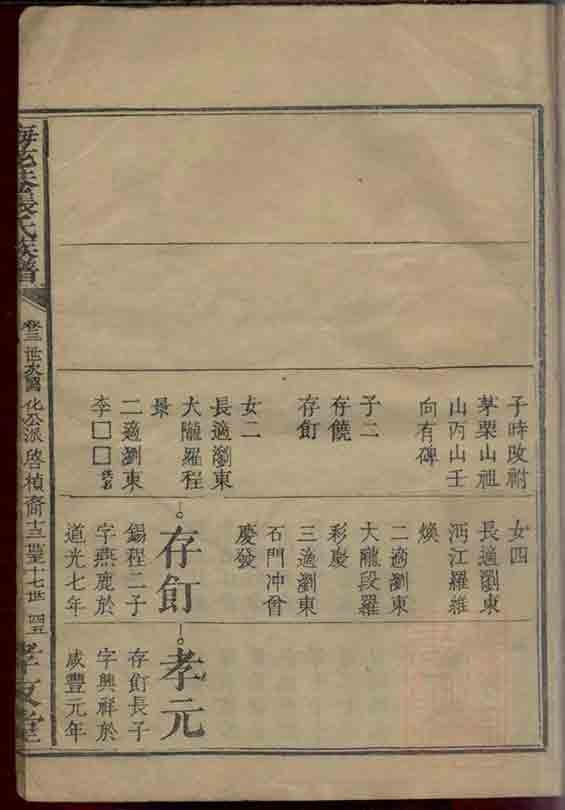 子時改祔
茅栗山祖
山丙山壬
向有碑
子二
存饒
存飣
女二
長適瀏東
大隴羅程
景
二適瀏東
李□□
女四
長適瀏東
沔江羅維
煥
二適瀏東
大隴段羅
彩慶
三適瀏東
石門冲曾
慶發
存飣
錫程二子
字燕鹿於
道光七年
孝元
存飣長子
字興祥於
咸豐元年
張氏族譜
卷三 世次圖 化公派 啓楨裔 十三豎十七世
孝友堂